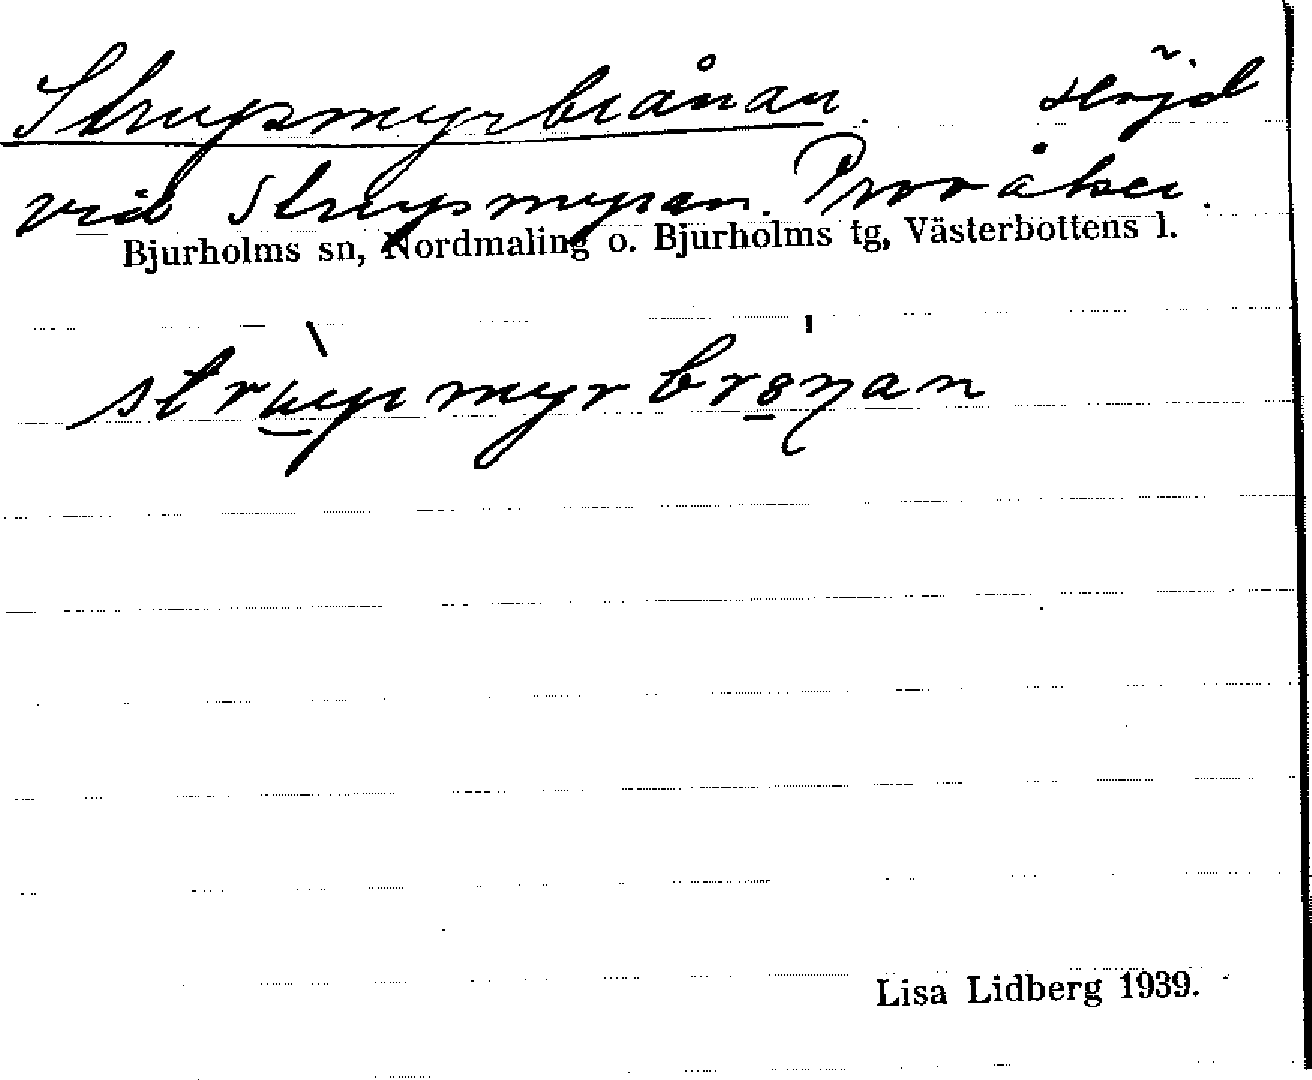 Strupsmyrbrånan. Höjd
vid Strupsmyran. Provåker.
Bjurholms sn, Nordmaling o. Bjurholms tg, Västerbottens l.
Lisa Lidberg 1939.